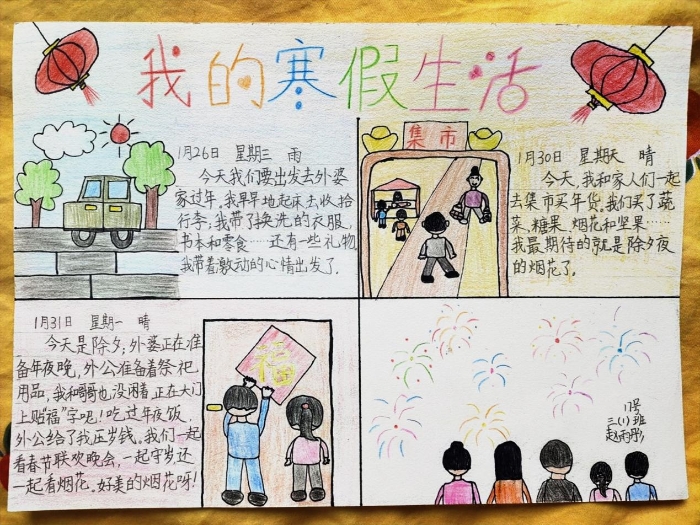 我的寒假生活
1月26日 星期三 雨
今天我们要出发去外婆
家过年。我早早地起床去收拾
行李,我带了换洗的衣服,
书本和零食……还有一些礼物,
我带着激动的心情出发了.
集市
1月30日 星期天 晴
今天,我和家人们一起
去集市买年货。我们买了蔬
菜、糖果、烟花和坚果……
我最期待的就是除夕夜
的烟花了。
1月31日 星期一 晴
今天是除夕;外婆正在准
备年夜晚,外公准备着祭祀
用品,我和哥哥也没闲着,正在大门
上贴福"字呢!吃过年夜饭,
外公给了我压岁钱。我们一起
看春节联欢晚会,一起守岁还
一起看烟花。好美的烟花呀!
福
11号
三(1)班
赵雨彤